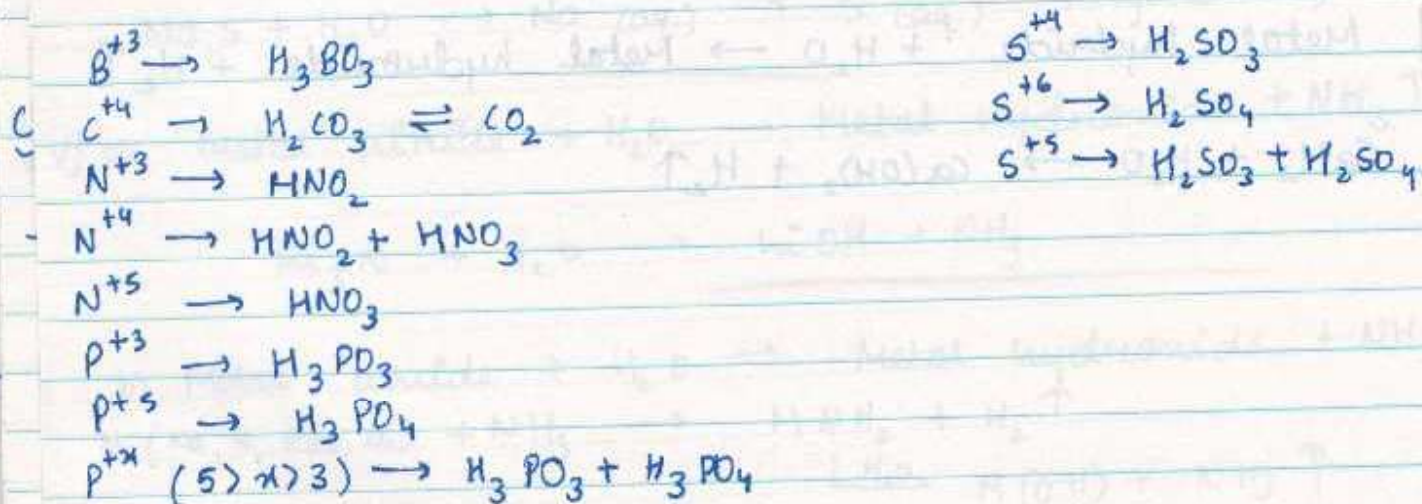 B⁺³ → H₃BO₃
C C⁺⁴ → H₂CO₃ ⇌ CO₂
N⁺³ → HNO₂
- N⁺⁴ → HNO₂ + HNO₃
N⁺⁵ → HNO₃
P⁺³ → H₃PO₃
P⁺⁵ → H₃PO₄
P⁺ˣ (5>x>3) → H₃PO₃ + H₃PO₄
S⁺⁴ → H₂SO₃
S⁺⁶ → H₂SO₄
S⁺⁵ → H₂SO₃ + H₂SO₄